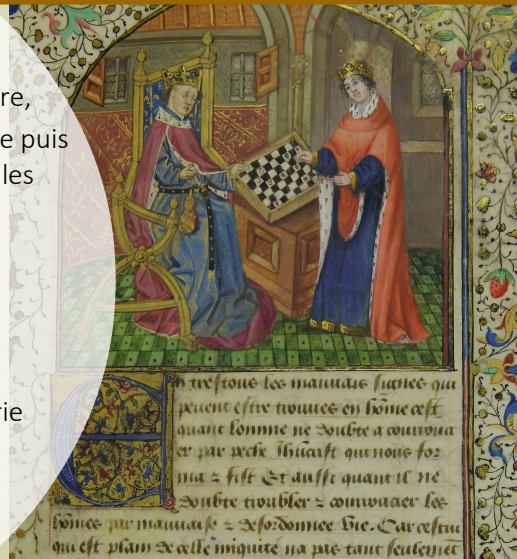 re,
e puis
les
rie
En trestous les mauuais signes qui
peuent estre trouues en hôme cest
quant lomme ne doubte a courrouc
er par peche Ihûcrist qui nous for
ma z fist Et aussi quant il ne
doubte troubler z courroucier les
hômes par mauuaise z desordonnee vie. Car cestui
qui est plain de celle iniquite na pas tant seulemêt